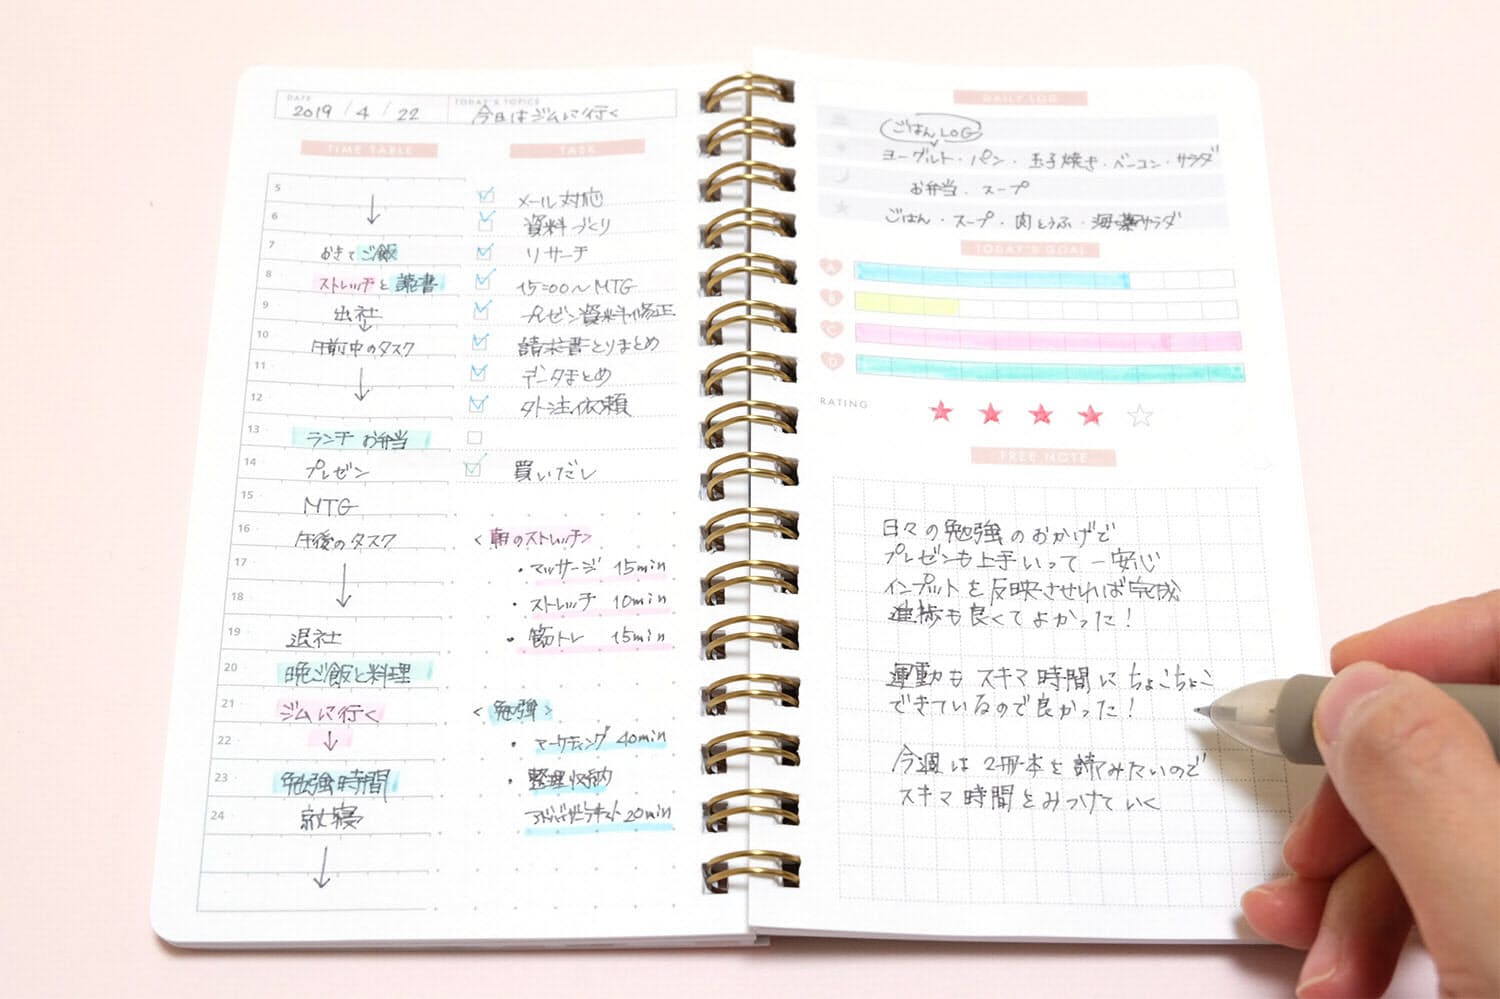 DATE
2019 / 4 / 22
TODAY'S TOPICS
今日はジムに行く
TIME TABLE
5
6
7 おきてご飯
8 ストレッチと読書
9 出社
10 午前中のタスク
11
12
13 ランチ お弁当
14 プレゼン
15 MTG
16 午後のタスク
17
18
19 退社
20 晩ご飯と料理
21 ジムに行く
22
23 勉強時間
24 就寝
TASK
メール対応
資料づくり
リサーチ
15:00〜MTG
プレゼン資料修正
請求書とりまとめ
データまとめ
外注依頼
買いだし
<朝のストレッチ>
・マッサージ 15min
・ストレッチ 10min
・筋トレ 15min
<勉強>
・マーケティング 40min
・整理収納
アドバイザーテキスト 20min
DAILY LOG
ごはんLOG
ヨーグルト・パン・玉子焼き・ベーコン・サラダ
お弁当・スープ
ごはん・スープ・肉とうふ・海藻サラダ
TODAY'S GOAL
A
B
C
D
RATING
FREE NOTE
日々の勉強のおかげで
プレゼンも上手いって一安心
インプットを反映させれば完成
進捗も良くてよかった!
運動もスキマ時間にちょこちょこ
できているので良かった!
今週は2冊本を読みたいので
スキマ時間をみつけていく